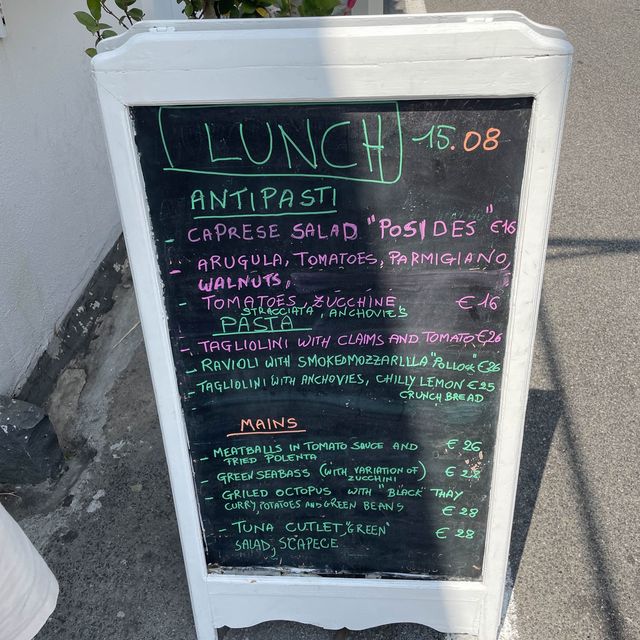 LUNCH 15.08
ANTIPASTI
- CAPRESE SALAD "POSIDES" €16
- ARUGULA, TOMATOES, PARMIGIANO,
WALNUTS,
- TOMATOES, ZUCCHINE €16
STRACCIATA, ANCHOVIES
PASTA
- TAGLIOLINI WITH CLAIMS AND TOMATO €26
- RAVIOLI WITH SMOKED MOZZARLLLA "POLLOCK" €26
- TAGLIOLINI WITH ANCHOVIES, CHILLY LEMON €25
CRUNCH BREAD
MAINS
- MEATBALLS IN TOMATO SAUCE AND € 26
FRIED POLENTA
- GREEN SEABASS (WITH VARIATION OF) € 28
ZUCCHINI
- GRILED OCTOPUS WITH "BLACK" THAY
CURRY, POTATOES AND GREEN BEANS € 28
- TUNA CUTLET, "GREEN" € 28
SALAD, SCAPECE